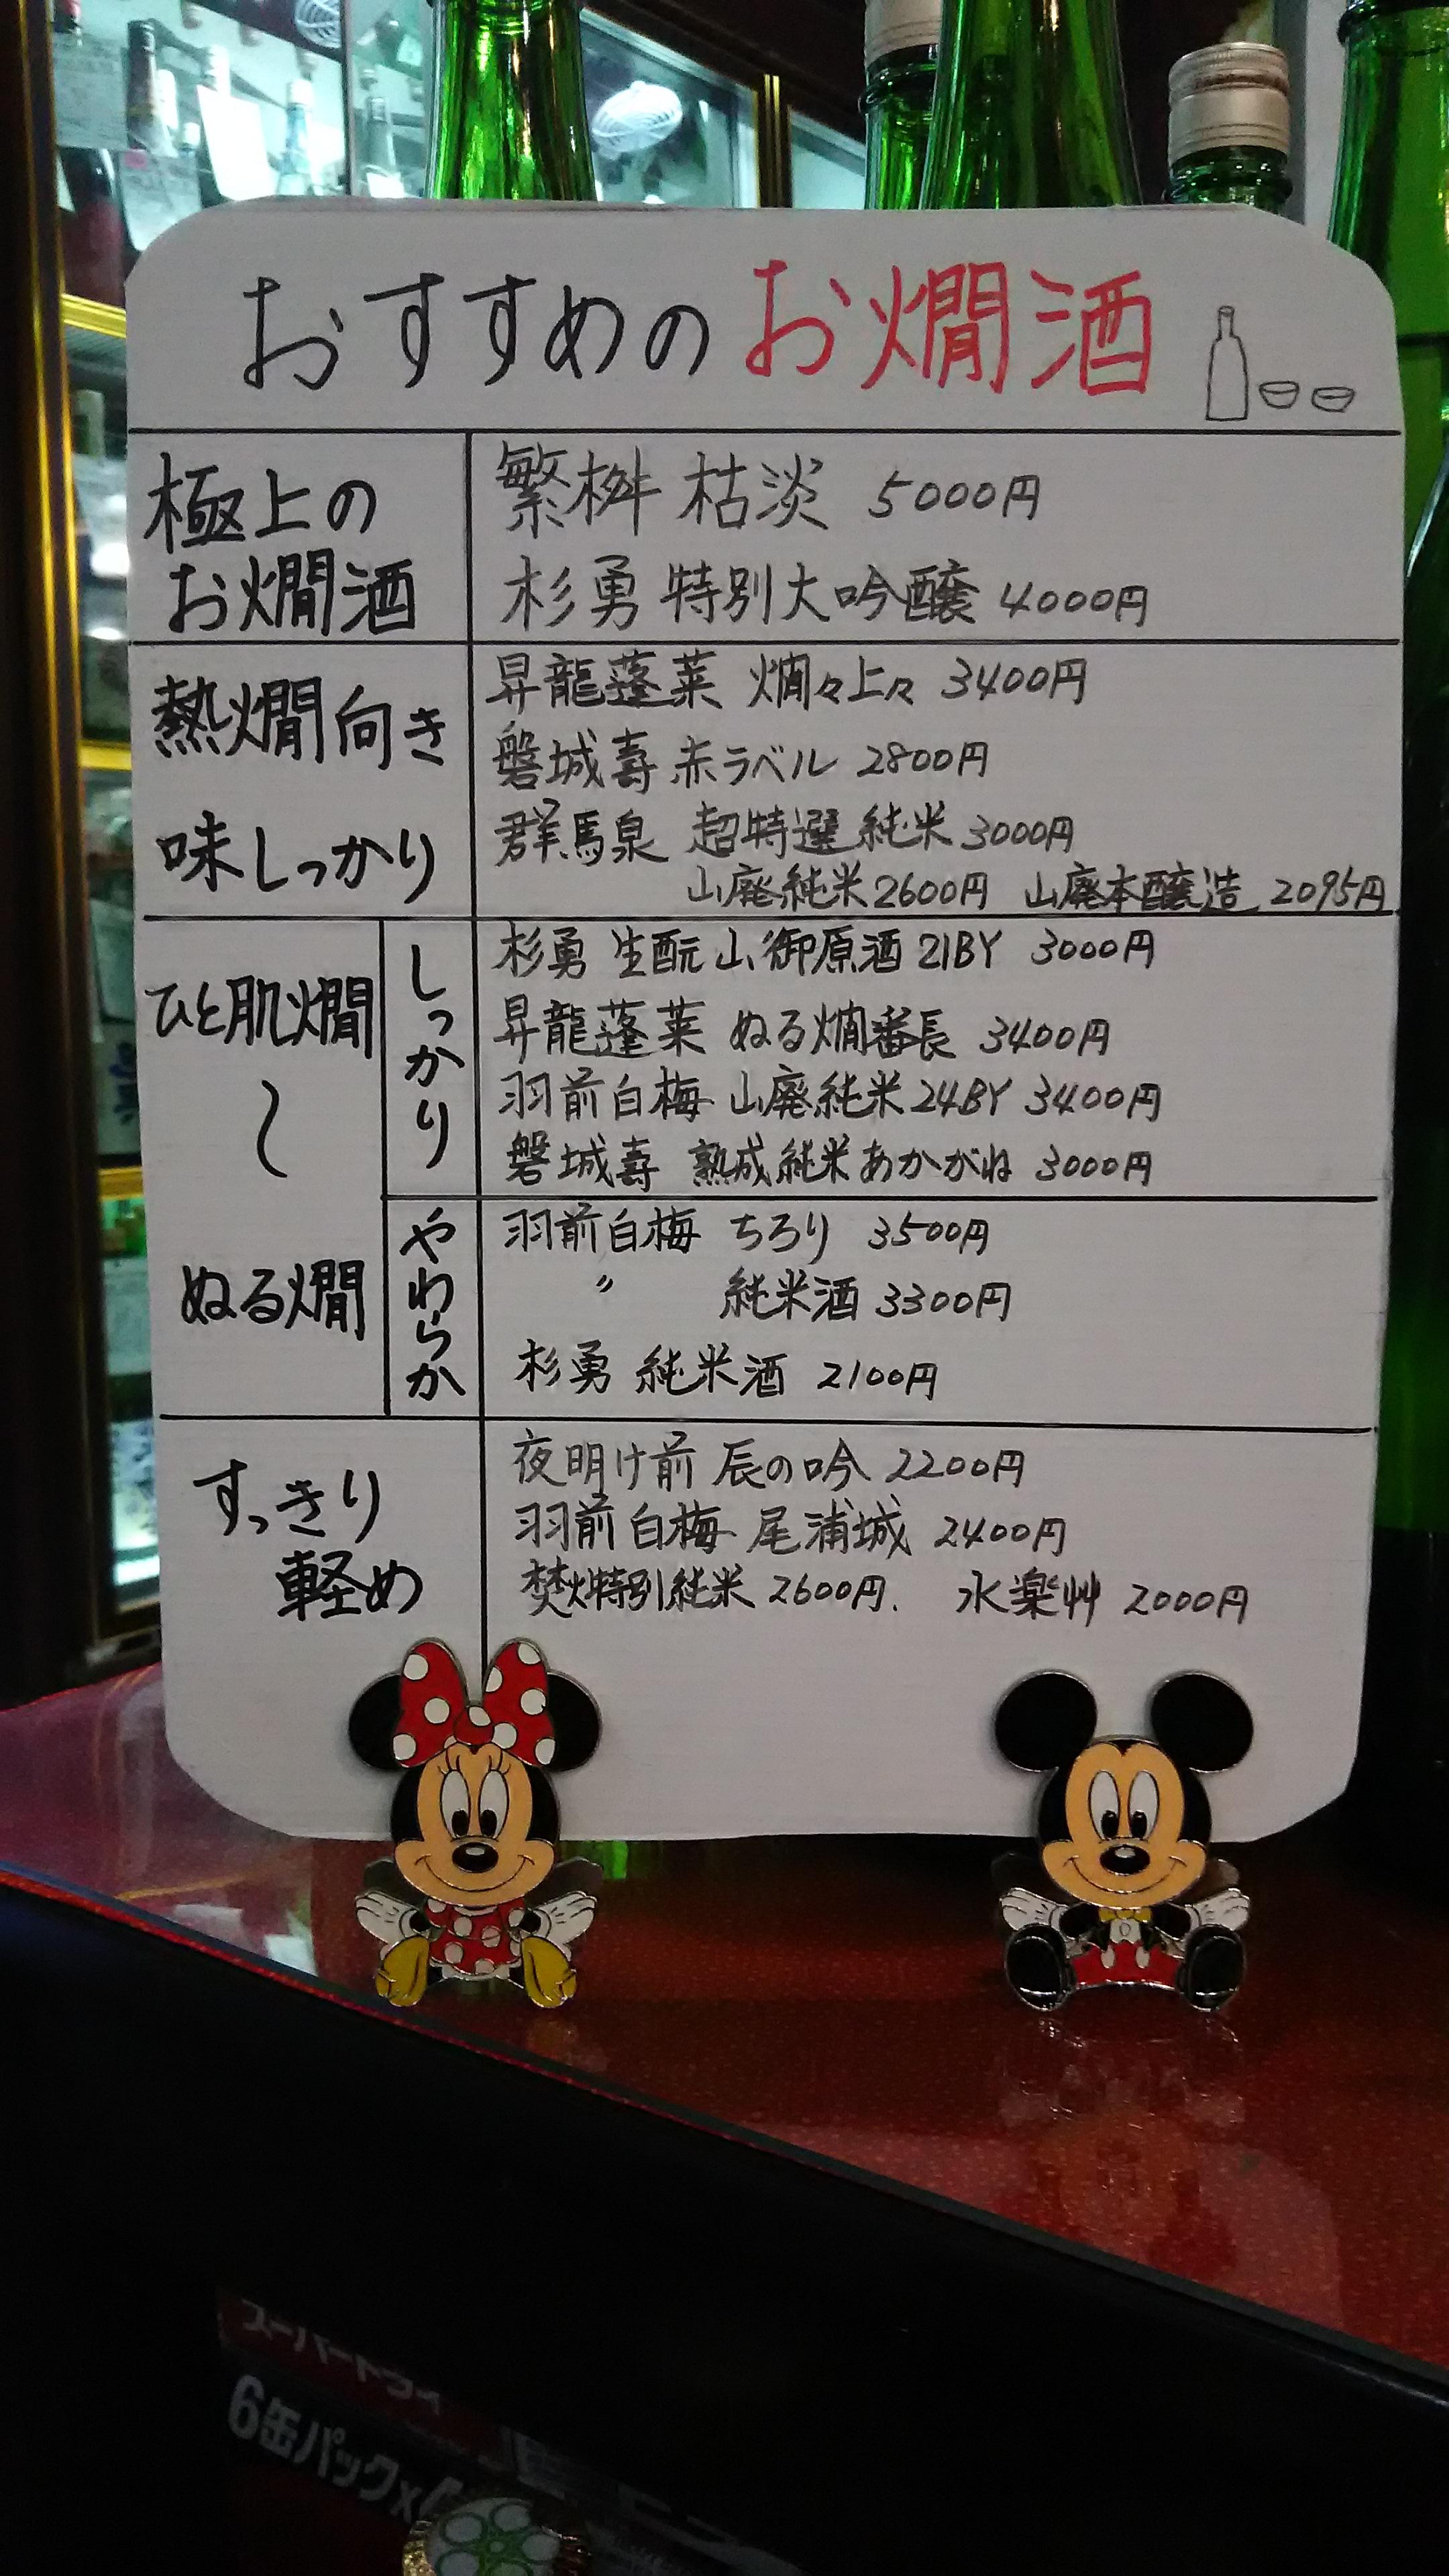 おすすめのお燗酒
極上の
お燗酒
繁桝 枯淡 5000円
杉勇 特別大吟醸 4000円
熱燗向き
味しっかり
昇龍蓬莱 燗々上々 3400円
磐城壽 赤ラベル 2800円
群馬泉 超特選純米 3000円
山廃純米 2600円 山廃本醸造 2095円
ひと肌燗
〜
ぬる燗
しっかり
杉勇 生酛山御原酒 21BY 3000円
昇龍蓬莱 ぬる燗番長 3400円
羽前白梅 山廃純米 24BY 3400円
磐城壽 熟成純米あかがね 3000円
やわらか
羽前白梅 ちろり 3500円
〃 純米酒 3300円
杉勇 純米酒 2100円
すっきり
軽め
夜明け前 辰の吟 2200円
羽前白梅 尾浦城 2400円
焚火特別純米 2600円. 水楽艸 2000円
スーパードライ
6缶パック×